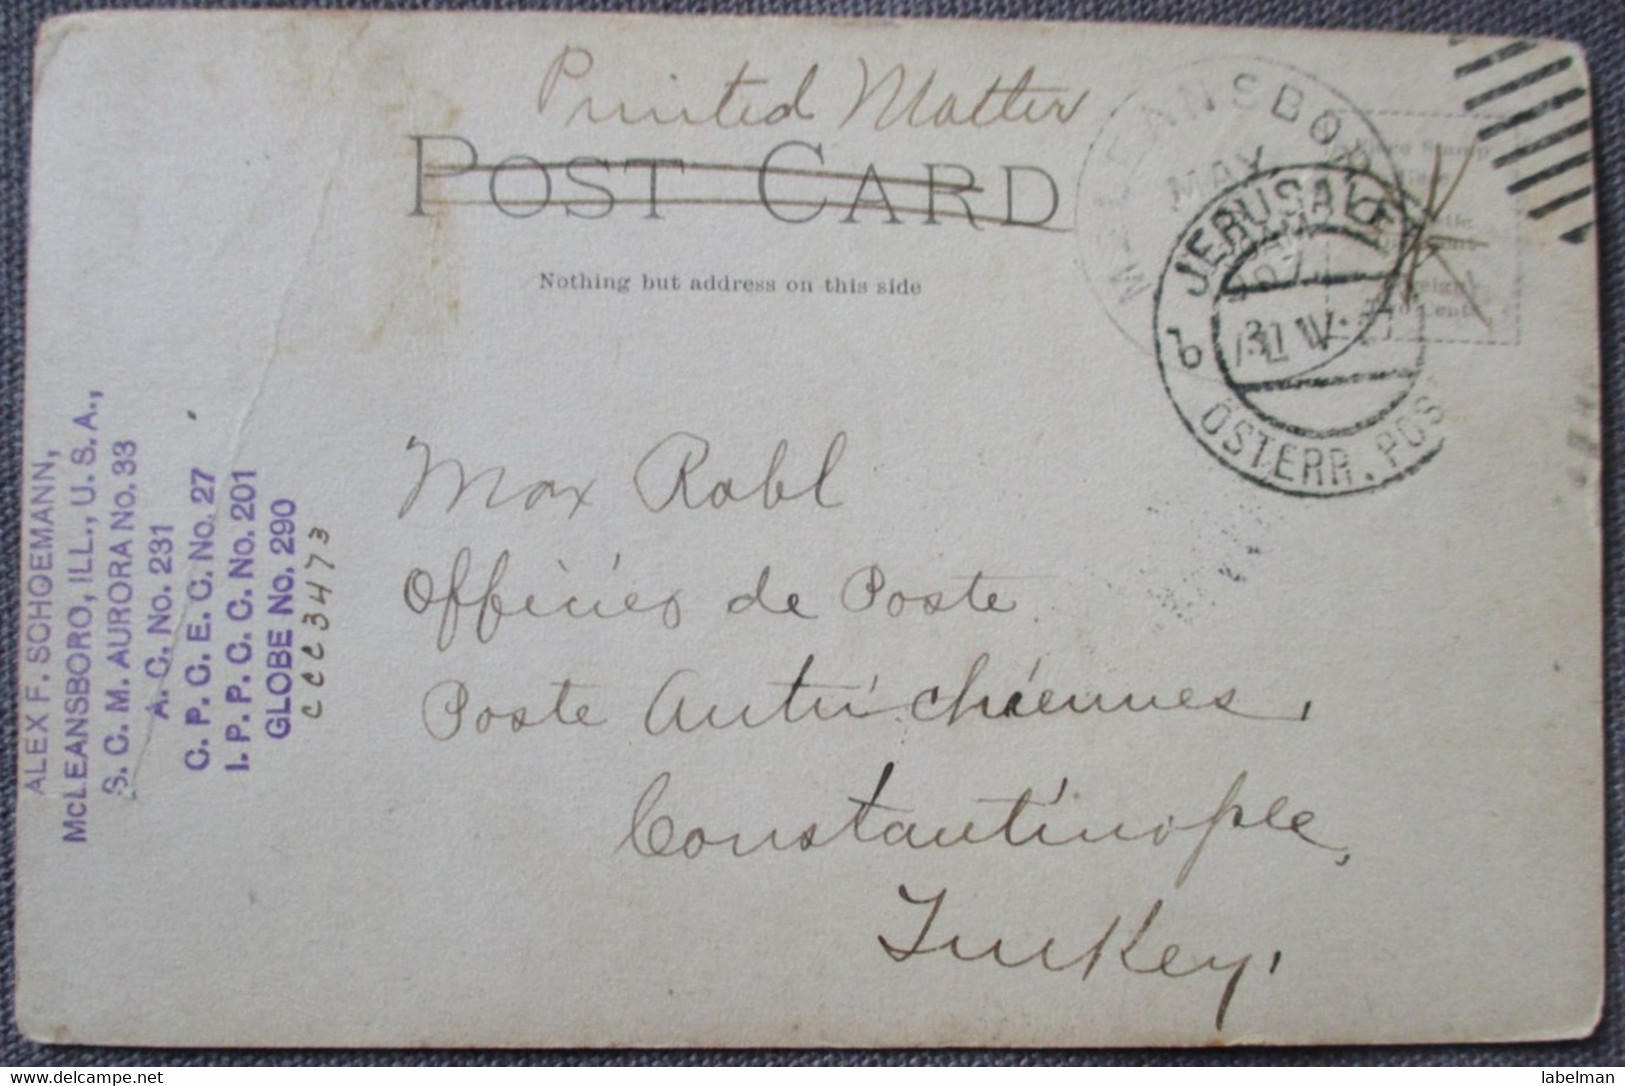 Printed Matter
POST CARD
Nothing but address on this side
McLEANSBORO
MAY
JERUSALEM
b
ÖSTERR. POST
Max Rabl
Officier de Poste
Poste Autrichiennes,
Constantinople,
Turkey.
ALEX F. SCHOEMANN,
McLEANSBORO, ILL., U. S. A.,
S. C. M. AURORA No. 33
A. C. No. 231
C. P. C. E. C. No. 27
I. P. P. C. C. No. 201
GLOBE No. 290
C C C 3473
labelman
delcampe.net